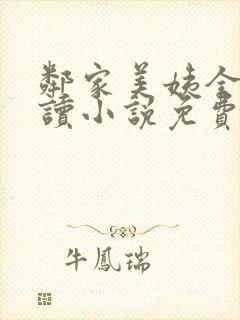 鄰家美姨全
讀小說免費
牛鳳瑞